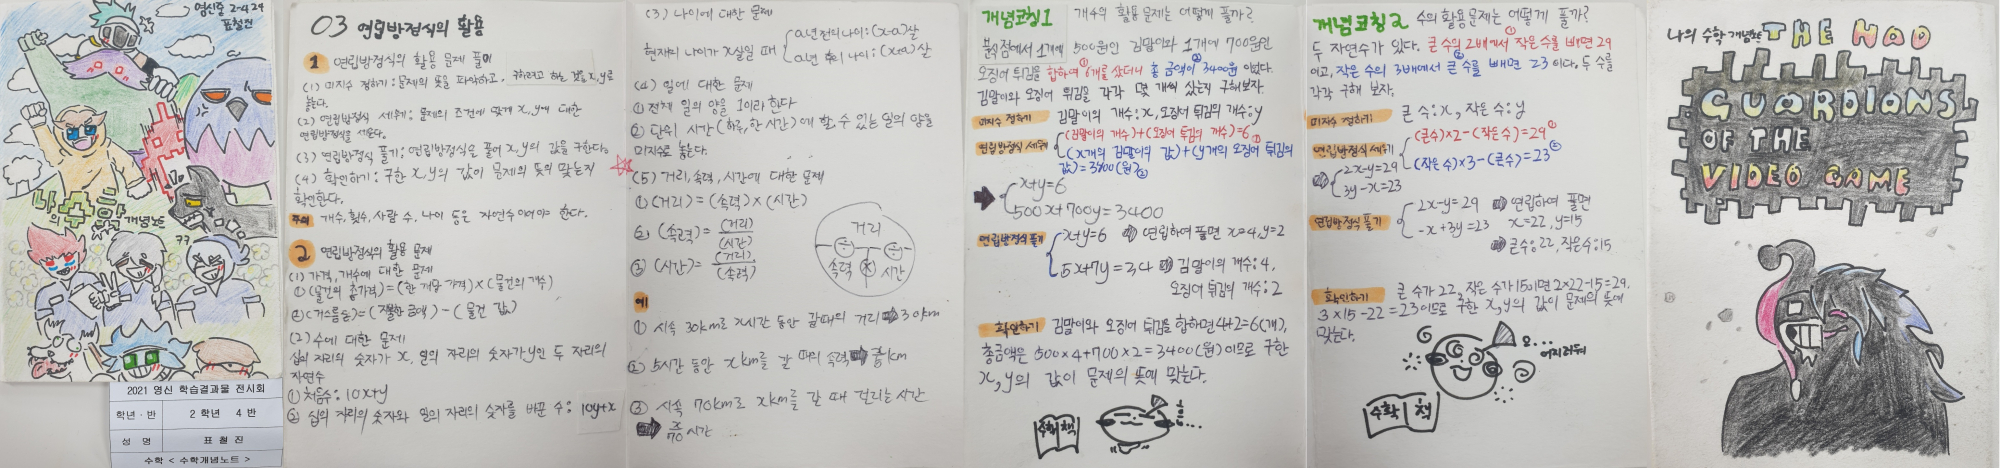 영신중 2-4 29
표철진
나수학
의 개념노트
ㅋㅋ
2021 영신 학습결과물 전시회
학년 · 반 2 학년 4 반
성 명 표 철 진
수학 < 수학개념노트 >
03 연립방정식의 활용
1 연립방정식의 활용 문제 풀이
(1) 미지수 정하기 : 문제의 뜻을 파악하고, 구하려고 하는 것을 x, y로
놓는다.
(2) 연립방정식 세우기 : 문제의 조건에 맞게 x, y에 대한
연립방정식을 세운다.
(3) 연립방정식 풀기 : 연립방정식을 풀어 x, y의 값을 구한다.
(4) 확인하기 : 구한 x, y의 값이 문제의 뜻의 맞는지
확인한다.
주의 개수, 횟수, 사람 수, 나이 등은 자연수이어야 한다.
2 연립방정식의 활용 문제
(1) 가격, 개수에 대한 문제
① (물건의 총가격) = (한 개당 가격) × (물건의 개수)
② (거스름돈) = (지불한 금액) - (물건 값)
(2) 수에 대한 문제
십의 자리의 숫자가 x, 일의 자리의 숫자가 y인 두 자리의
자연수
① 처음수 : 10x+y
② 십의 자리의 숫자와 일의 자리의 숫자를 바꾼 수 : 10y+x
(3) 나이에 대한 문제
현재의 나이가 x살일 때
a년 전의 나이 : (x-a)살
a년 후의 나이 : (x+a)살
(4) 일에 대한 문제
① 전체 일의 양을 1이라 한다
② 단위 시간(하루, 한 시간)에 할 수 있는 일의 양을
미지수로 놓는다.
(5) 거리, 속력, 시간에 대한 문제
① (거리) = (속력) × (시간)
② (속력) = (거리)/(시간)
③ (시간) = (거리)/(속력)
거리
÷ ÷
속력 × 시간
예
① 시속 30km로 x시간 동안 갈때의 거리 ➡ 30xkm
② 5시간 동안 xkm를 갈 때의 속력 ➡ x/5 km
③ 시속 70km로 xkm를 갈 때 걸리는 시간
➡ x/70 시간
개념코칭 1 개수의 활용문제는 어떻게 풀까?
분식점에서 1개에 500원인 김말이와 1개에 700원인
오징어 튀김을 합하여 6개를 샀더니 총 금액이 3400원 이었다.
김말이와 오징어 튀김을 각각 몇 개씩 샀는지 구해보자.
미지수 정하기 김말이의 개수 : x, 오징어 튀김의 개수 : y
연립방정식 세우기 (김말이의 개수) + (오징어 튀김의 개수) = 6 ①
(x개의 김말이의 값) + (y개의 오징어 튀김의
값) = 3400(원) ②
➡ x+y=6
500x+700y=3400
연립방정식 풀기 x+y=6 ➡ 연립하여 풀면 x=4, y=2
5x+7y=34 ➡ 김말이의 개수 : 4,
오징어 튀김의 개수 : 2
확인하기 김말이와 오징어 튀김을 합하면 4+2=6(개),
총금액은 500×4+700×2=3400(원)이므로 구한
x, y의 값이 문제의 뜻에 맞는다.
수학 책
개념코칭 2 수의 활용문제는 어떻게 풀까?
두 자연수가 있다. 큰 수의 2배에서 작은 수를 빼면 29
이고, 작은 수의 3배에서 큰 수를 빼면 23 이다. 두 수를
각각 구해 보자.
미지수 정하기 큰 수 : x, 작은 수 : y
연립방정식 세우기 (큰수)×2-(작은수)=29 ①
(작은수)×3-(큰수)=23 ②
➡ 2x-y=29
3y-x=23
연립방정식 풀기 2x-y=29 ➡ 연립하여 풀면
-x+3y=23 x=22, y=15
➡ 큰수 : 22, 작은수 : 15
확인하기 큰 수가 22, 작은 수가 15이면 2×22-15=29,
3×15-22=23이므로 구한 x, y의 값이 문제의 뜻에
맞는다.
으...
어지러워
수학 책
나의 수학 개념노트 THE MAD
GUARDIANS
OF THE
VIDEO GAME